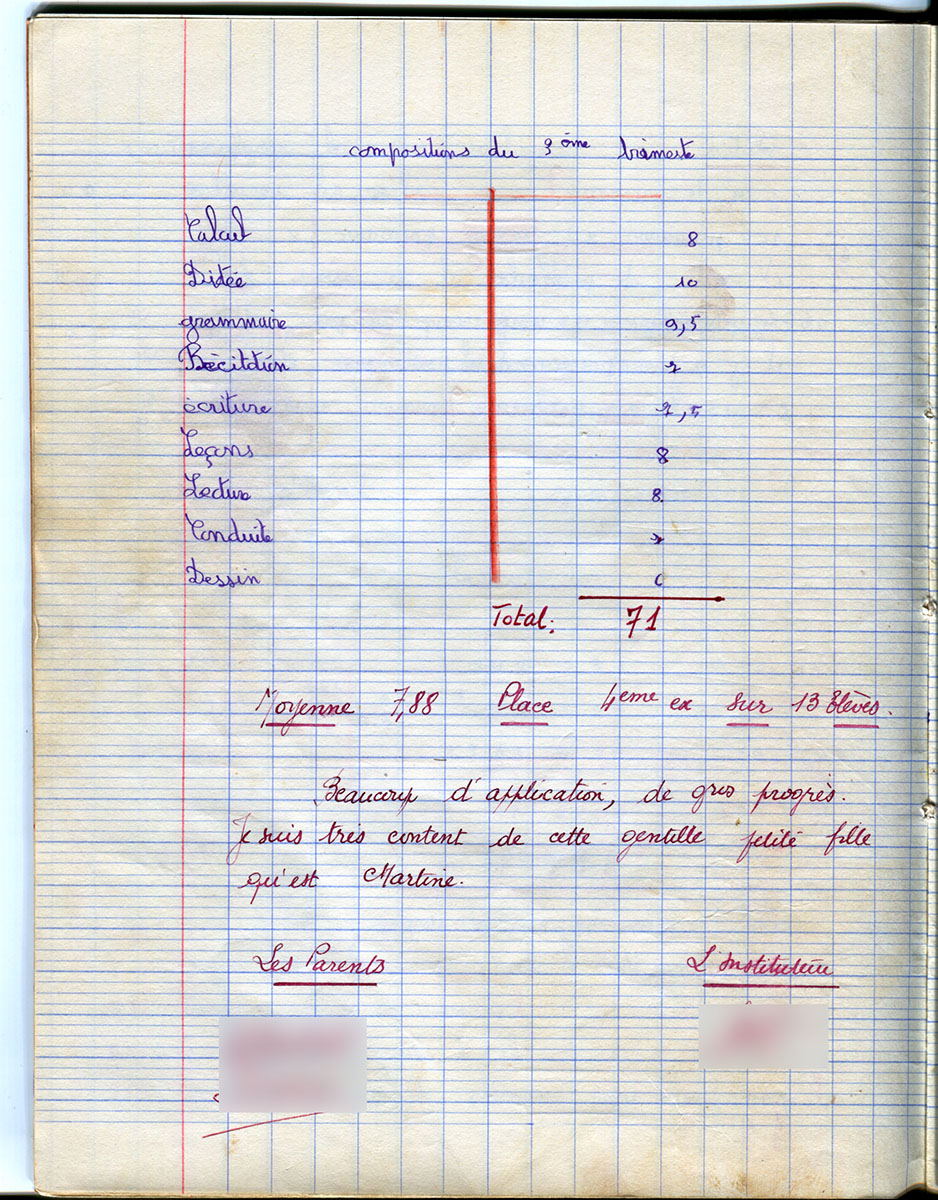 compositions du 3 ème trimestre
Calcul 8
Ditée 10
grammaire 9,5
Rècitation 7
ècriture 7,5
Leçons 8
Lecture 8
Conduite 7
Dessin 6
Total: 71
Moyenne 7,88 Place 4eme ex sur 13 Elèves.
Beaucoup d'application, de gros progrès.
Je suis très content de cette gentille petite fille
qu'est Martine.
Les Parents L'instituteur